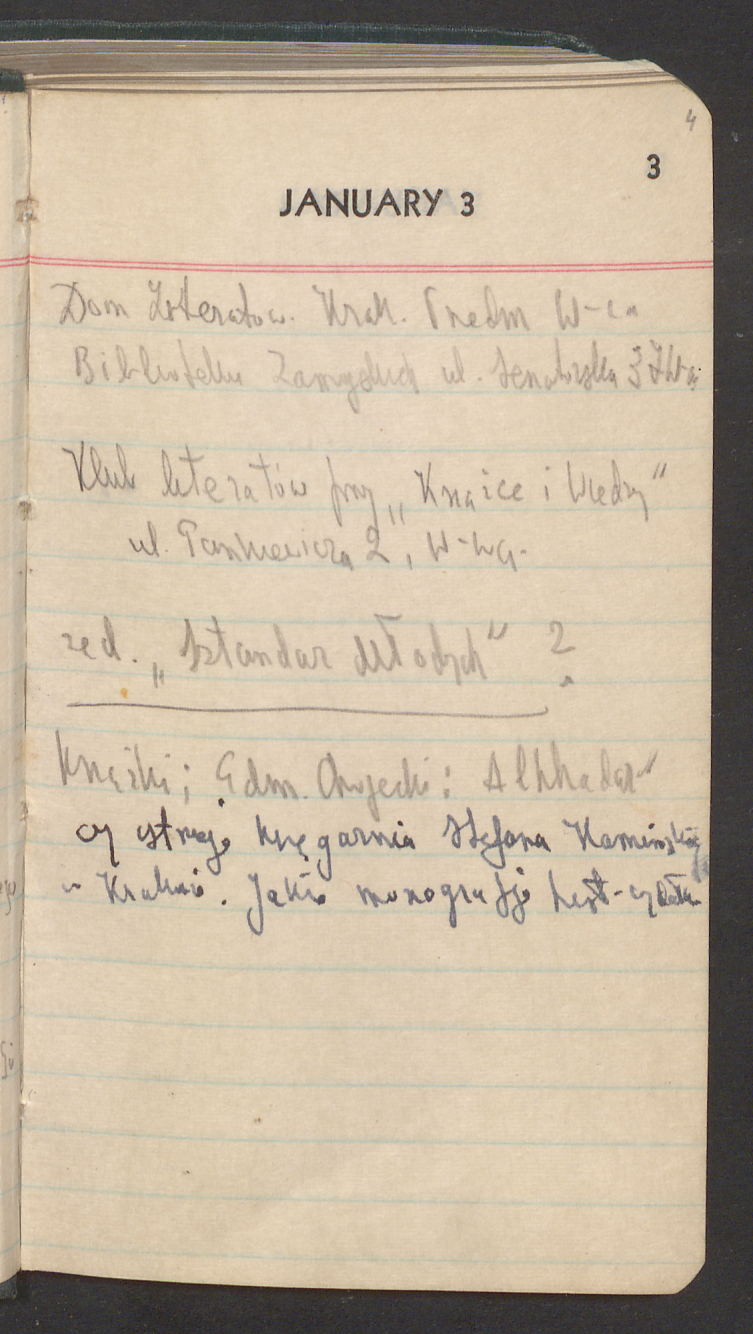 4
3
JANUARY 3
Dom Literatów. Krak. Przedm W-wa
Biblioteka Zamoyskich ul. Senatorska 37 W-wa
Klub literatów przy „Książce i Wiedzy"
ul. Pankiewicza 2, W-wa.
red. „Sztandar Młodych" ?
Książki; Edm. Osmańczyk
czy istnieje księgarnia Stefana Kamińskiego
w Krakowie. Jakie monografie